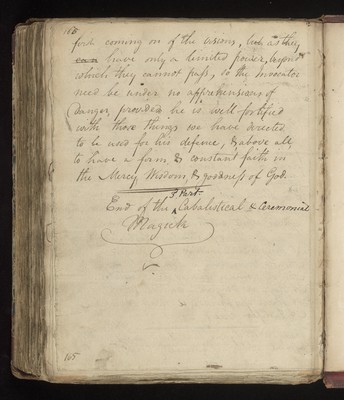 168
first coming on of the visions, but as they
can have only a limited power, beyond
which they cannot pass, so the Invocator
need be under no apprehensions of
Danger, provided he is well fortified
with those things we have directed
to be used for his defence, & above all,
to have a firm & constant faith in
the Mercy Wisdom, & goodness of God.
3 Part
End of the ‸ Cabalistical & Ceremonial
Magick
165